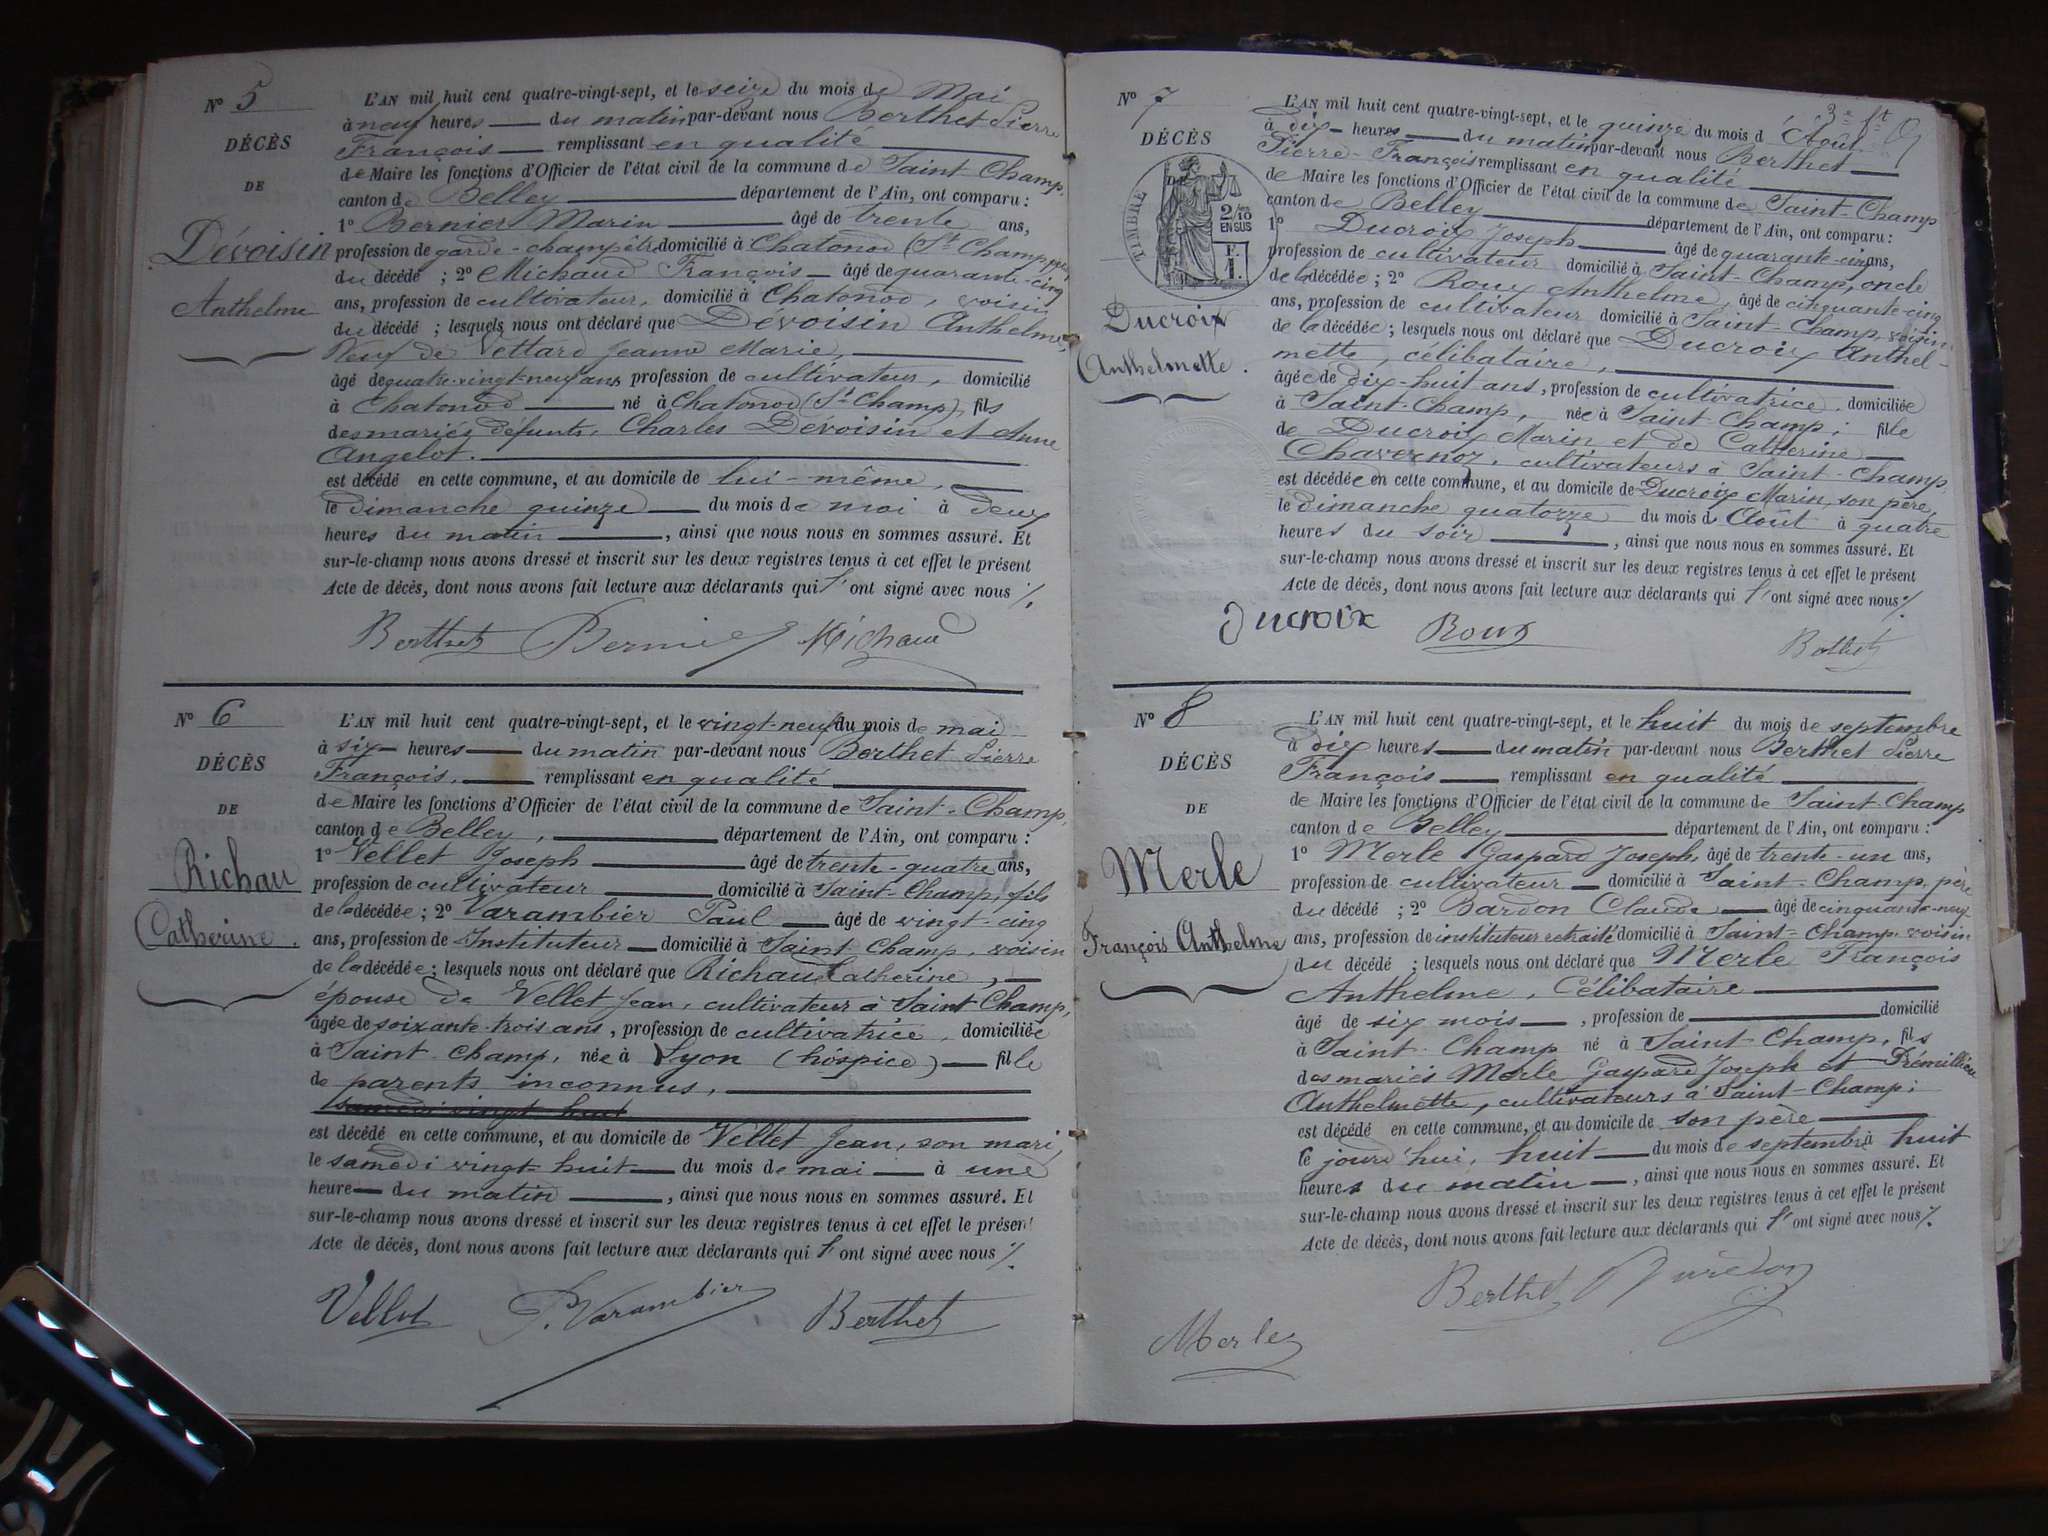 Nº 5
DÉCÈS
DE
Dévoisin
Anthelme
L'AN mil huit cent quatre-vingt-sept, et le seize du mois de Mai
à neuf heures du matin par-devant nous Berthet Pierre
François remplissant en qualité
de Maire les fonctions d'Officier de l'état civil de la commune de Saint Champ,
canton de Belley département de l'Ain, ont comparu :
1º Bernier Marin âgé de trente ans,
profession de garde-champêtre domicilié à Chatonod (St Champ)
du décédé ; 2º Michaud François âgé de quarante-cinq
ans, profession de cultivateur, domicilié à Chatonod, voisin
du décédé ; lesquels nous ont déclaré que Dévoisin Anthelme,
Veuf de Vettard Jeanne Marie,
âgé de quatre-vingt-neuf ans profession de cultivateur, domicilié
à Chatonod né à Chatonod (St Champ), fils
des mariés défunts, Charles Dévoisin et Anne
Angelot.
est décédé en cette commune, et au domicile de lui-même,
le dimanche quinze du mois de mai à deux
heures du matin, ainsi que nous nous en sommes assuré. Et
sur-le-champ nous avons dressé et inscrit sur les deux registres tenus à cet effet le présent
Acte de décès, dont nous avons fait lecture aux déclarants qui l'ont signé avec nous ./.
Berthet Bernier Michaud
Nº 6
DÉCÈS
DE
Richau
Catherine.
L'AN mil huit cent quatre-vingt-sept, et le vingt-neuf du mois de mai
à six heures du matin par-devant nous Berthet Pierre
François, remplissant en qualité
de Maire les fonctions d'Officier de l'état civil de la commune de Saint-Champ,
canton de Belley, département de l'Ain, ont comparu :
1º Vellet Joseph âgé de trente-quatre ans,
profession de cultivateur domicilié à Saint-Champ, fils
de la décédée ; 2º Varambier Paul âgé de vingt-cinq
ans, profession de Instituteur domicilié à Saint Champ, voisin
de la décédée ; lesquels nous ont déclaré que Richau Catherine,
épouse de Vellet Jean, cultivateur à Saint Champ,
âgée de soixante-trois ans, profession de cultivatrice, domiciliée
à Saint-Champ, née à Lyon (hospice) fille
de parents inconnus,
samedi vingt huit
est décédé en cette commune, et au domicile de Vellet Jean, son mari,
le samedi vingt-huit du mois de mai à une
heure du matin, ainsi que nous nous en sommes assuré. Et
sur-le-champ nous avons dressé et inscrit sur les deux registres tenus à cet effet le présent
Acte de décès, dont nous avons fait lecture aux déclarants qui l'ont signé avec nous ./.
Vellet P. Varambier Berthet
Nº 7
DÉCÈS
DE
TIMBRE
2/10
EN SUS
F.
1.
Ducroix
Anthelmette.
L'AN mil huit cent quatre-vingt-sept, et le quinze du mois d'Août
à dix heures du matin par-devant nous Berthet
Pierre-François remplissant en qualité
de Maire les fonctions d'Officier de l'état civil de la commune de Saint-Champ
canton de Belley département de l'Ain, ont comparu :
1º Ducroix Joseph âgé de quarante-cinq ans,
profession de cultivateur domicilié à Saint-Champ, oncle
de la décédée ; 2º Roux Anthelme, âgé de cinquante-cinq
ans, profession de cultivateur domicilié à Saint-Champ, voisin
de la décédée ; lesquels nous ont déclaré que Ducroix Anthel-
mette, célibataire,
âgée de dix-huit ans, profession de cultivatrice, domiciliée
à Saint-Champ, née à Saint-Champ ; fille
de Ducroix Marin et de Catherine
Chavernoz, cultivateurs à Saint-Champ,
est décédée en cette commune, et au domicile de Ducroix Marin, son père,
le dimanche quatorze du mois d'Août à quatre
heures du soir, ainsi que nous nous en sommes assuré. Et
sur-le-champ nous avons dressé et inscrit sur les deux registres tenus à cet effet le présent
Acte de décès, dont nous avons fait lecture aux déclarants qui l'ont signé avec nous ./.
Ducroix Roux Berthet
Nº 8
DÉCÈS
DE
Merle
François Anthelme
L'AN mil huit cent quatre-vingt-sept, et le huit du mois de septembre
à dix heures du matin par-devant nous Berthet Pierre
François remplissant en qualité
de Maire les fonctions d'Officier de l'état civil de la commune de Saint-Champ
canton de Belley département de l'Ain, ont comparu :
1º Merle Gaspard Joseph, âgé de trente-un ans,
profession de cultivateur domicilié à Saint-Champ, père
du décédé ; 2º Bardon Claude âgé de cinquante-neuf
ans, profession de instituteur retraité domicilié à Saint-Champ, voisin
du décédé ; lesquels nous ont déclaré que Merle François
Anthelme, Célibataire
âgé de six mois, profession de domicilié
à Saint-Champ né à Saint-Champ, fils
des mariés Merle Gaspard Joseph et Prémillieu
Anthelmette, cultivateurs à Saint-Champ ;
est décédé en cette commune, et au domicile de son père
le jourd'hui, huit du mois de septembre à huit
heures du matin, ainsi que nous nous en sommes assuré. Et
sur-le-champ nous avons dressé et inscrit sur les deux registres tenus à cet effet le présent
Acte de décès, dont nous avons fait lecture aux déclarants qui l'ont signé avec nous ./.
Berthet
Merle